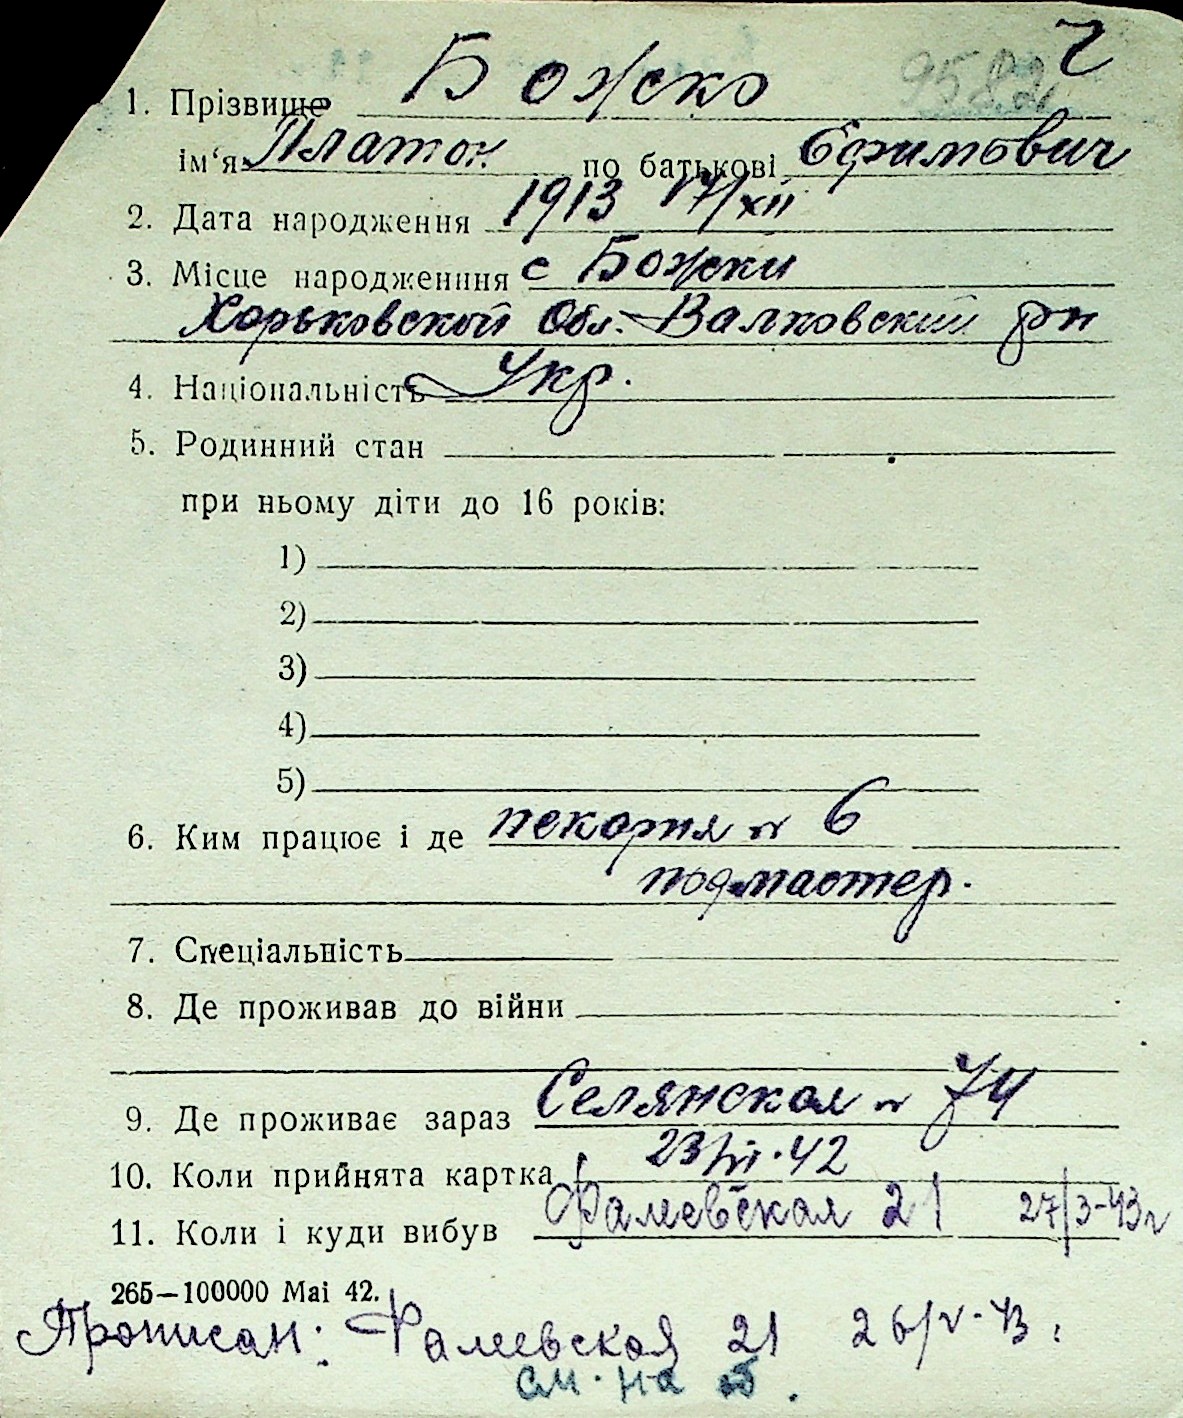 Ч
9582
1. Прізвище Божко
ім'я Платон по батькові Ефимович
2. Дата народження 1913 17/XII
3. Місце народженння с Божки
Харьковской Обл. Валковский рн
4. Національність Укр.
5. Родинний стан
при ньому діти до 16 років:
1)
2)
3)
4)
5)
6. Ким працює і де пекарня № 6
подмастер.
7. Спеціальність
8. Де проживав до війни
9. Де проживає зараз Селянская № 74
10. Коли прийнята картка 23/VI.42
11. Коли і куди вибув Фалеевская 21 27/3-43г
265—100000 Маі 42.
Прописан: Фалеевская 21 26/V-43г
см. на